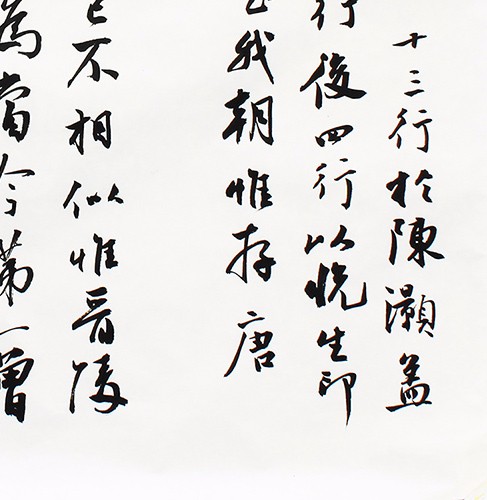 十三行於陳灝蓋
行後四行以悅生印
我朝惟存唐
不相似惟晉陵
為當今第一曾